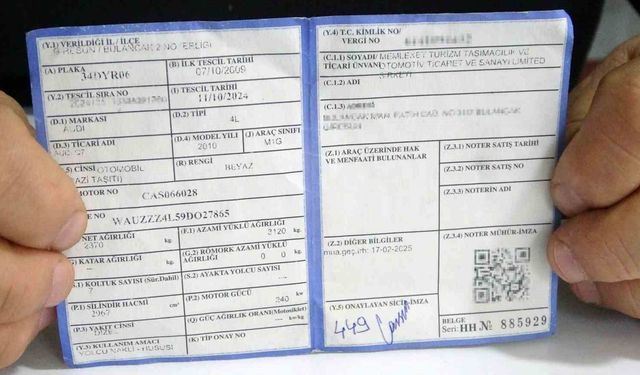 (Y.1) VERİLDİĞİ İL / İLÇE
BULANCAK 2.NOTERLİĞİ
(A) PLAKA
34DYR06
(B) İLK TESCİL TARİHİ
07/10/2009
(Y.2) TESCİL SIRA NO
(I) TESCİL TARİHİ
11/10/2024
(D.1) MARKASI
AUDI
(D.2) TİPİ
4L
(D.3) TİCARİ ADI
AUDI Q7
(D.4) MODEL YILI
2010
(J) ARAÇ SINIFI
M1G
.5) CİNSİ
OTOMOBİL
AZİ TAŞITI)
(R) RENGİ
BEYAZ
MOTOR NO
CAS066028
WAUZZZ4L59DO27865
NET AĞIRLIĞI
2370 kg.
(F.1) AZAMİ YÜKLÜ AĞIRLIĞI
3120 kg.
G) KATAR AĞIRLIĞI
--- kg.
(G.2) RÖMORK AZAMİ YÜKLÜ AĞIRLIĞI
0 0 kg.
.1) KOLTUK SAYISI (Sür.Dahil)
7
(S.2) AYAKTA YOLCU SAYISI
---
(P.1) SİLİNDİR HACMİ
2967 cm³
(P.2) MOTOR GÜCÜ
240 kw
(P.3) YAKIT CİNSİ
DİZEL
(Q) GÜÇ AĞIRLIK ORANI (Motosiklet)
--- kw/kg
(Y.3) KULLANIM AMACI
YOLCU NAKLİ - HUSUSİ
(K) TİP ONAY NO
(Y.4) T.C. KİMLİK NO/
VERGİ NO
(C.1.1) SOYADI/
TİCARİ ÜNVANI
MEMLEKET TURİZM TAŞIMACILIK VE
OTOMOTİV TİCARET VE SANAYİ LİMİTED
ŞİRKETİ
(C.1.2) ADI
(C.1.3) ADRESİ
(Z.1) ARAÇ ÜZERİNDE HAK
VE MENFAATİ BULUNANLAR
(Z.3.1) NOTER SATIŞ TARİHİ
(Z.3.2) NOTER SATIŞ NO
(Z.3.3) NOTERİN ADI
(Z.2) DİĞER BİLGİLER
mua.geç.trh: 17-02-2025
(Z.3.4) NOTER MÜHÜR-İMZA
(Y.5) ONAYLAYAN SİCİL-İMZA
449
BELGE
Seri: HH № 885929